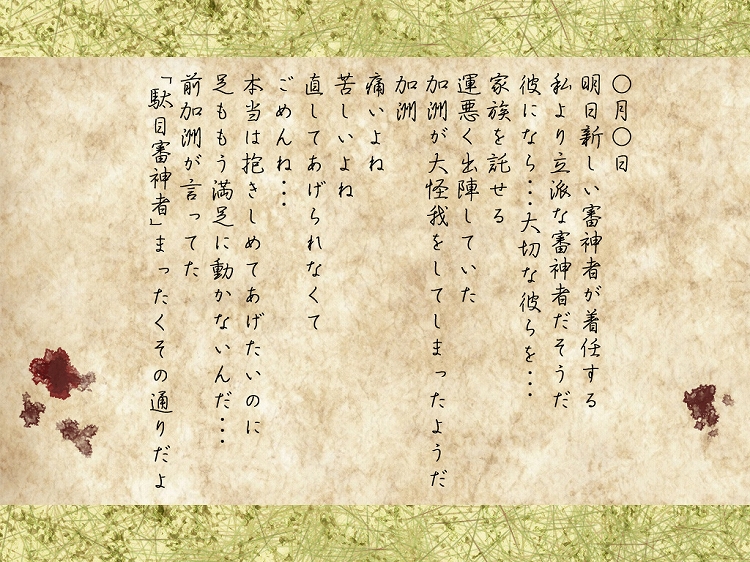 〇月〇日
明日新しい審神者が着任する
私より立派な審神者だそうだ
彼になら…大切な彼らを…
家族を託せる
運悪く出陣していた
加洲が大怪我をしてしまったようだ
加洲
痛いよね
苦しいよね
直してあげられなくて
ごめんね…
本当は抱きしめてあげたいのに
足ももう満足に動かないんだ…
前加洲が言ってた
「駄目審神者」まったくその通りだよ